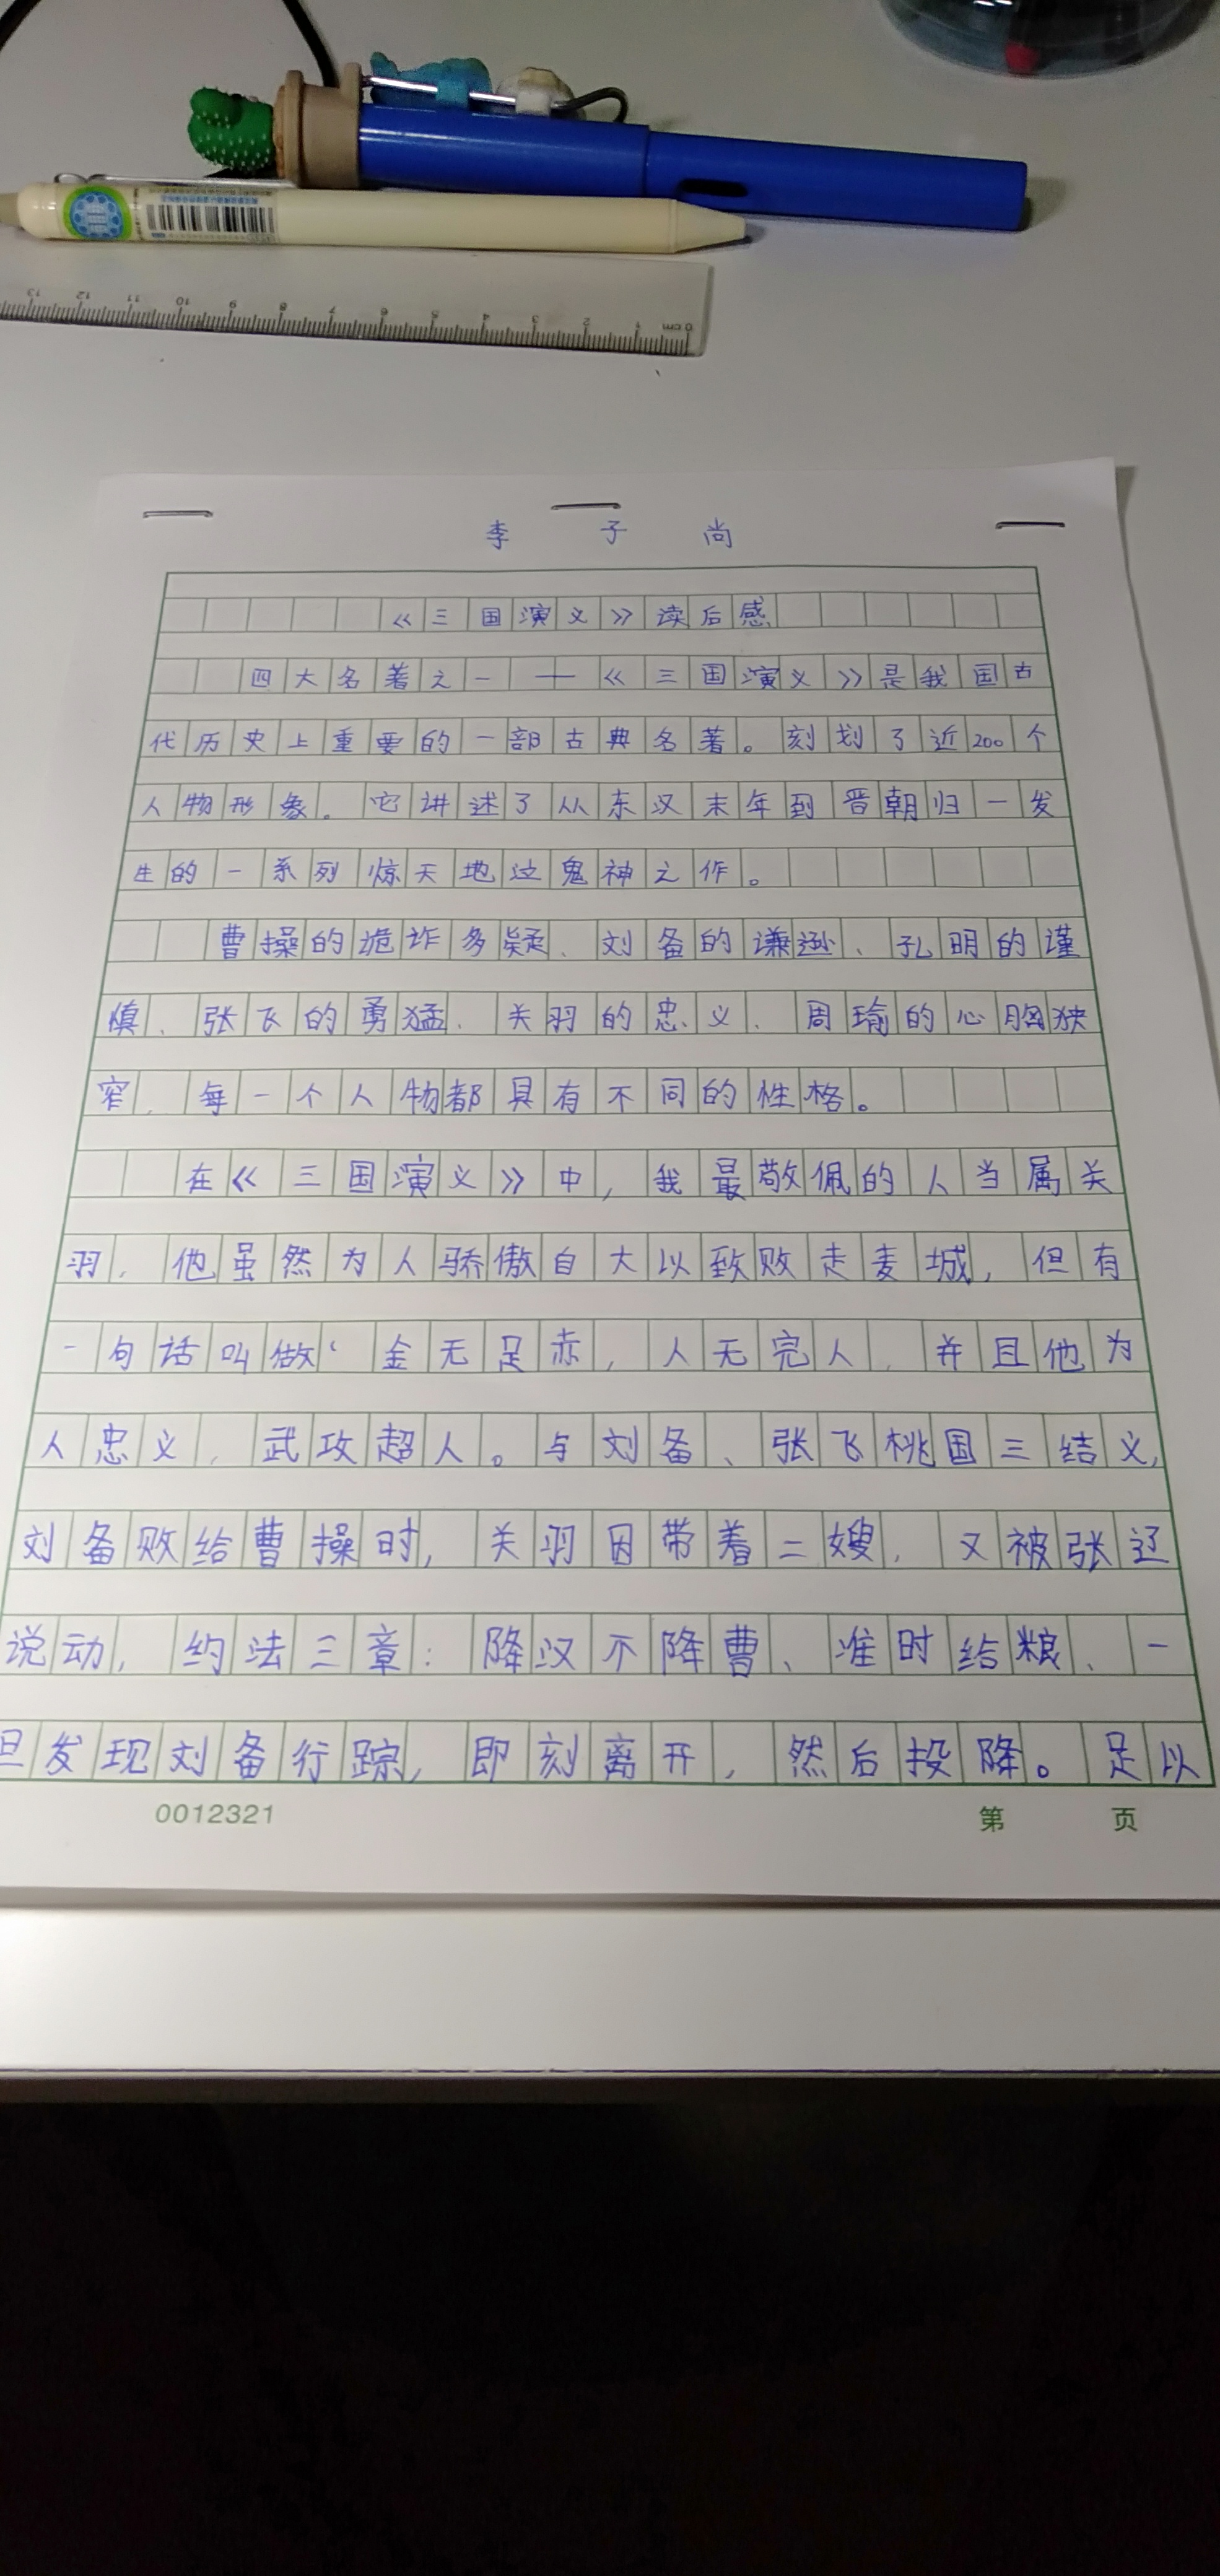 13 12 11 10 9 8 7 6 5 4 3 2 1 0 cm
李子尚
《三国演义》读后感
四大名著之一——《三国演义》是我国古
代历史上重要的一部古典名著。刻划了近200个
人物形象。它讲述了从东汉末年到晋朝归一发
生的一系列惊天地泣鬼神之作。
曹操的诡诈多疑、刘备的谦逊、孔明的谨
慎、张飞的勇猛、关羽的忠义、周瑜的心胸狭
窄，每一个人物都具有不同的性格。
在《三国演义》中，我最敬佩的人当属关
羽，他虽然为人骄傲自大以致败走麦城，但有
一句话叫做‘金无足赤，人无完人，并且他为
人忠义，武攻超人。与刘备、张飞桃园三结义，
刘备败给曹操时，关羽因带着二嫂，又被张辽
说动，约法三章：降汉不降曹、准时给粮、一
旦发现刘备行踪，即刻离开，然后投降。足以
0012321 第 页